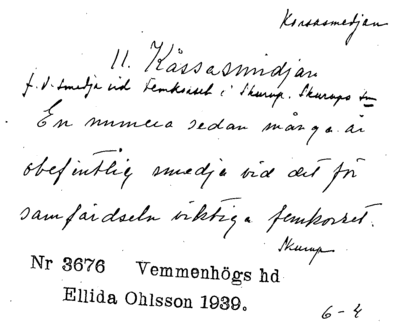 Korsasmedjan
11. Kåssasmidjan
f. d. smedja vid Femkorset i Skurup. Skurups sn
En numera sedan många år
obefintlig smedja vid det för
samfärdseln viktiga femkorset.
Skurup
Nr 3676 Vemmenhögs hd
Ellida Ohlsson 1939.
6-4